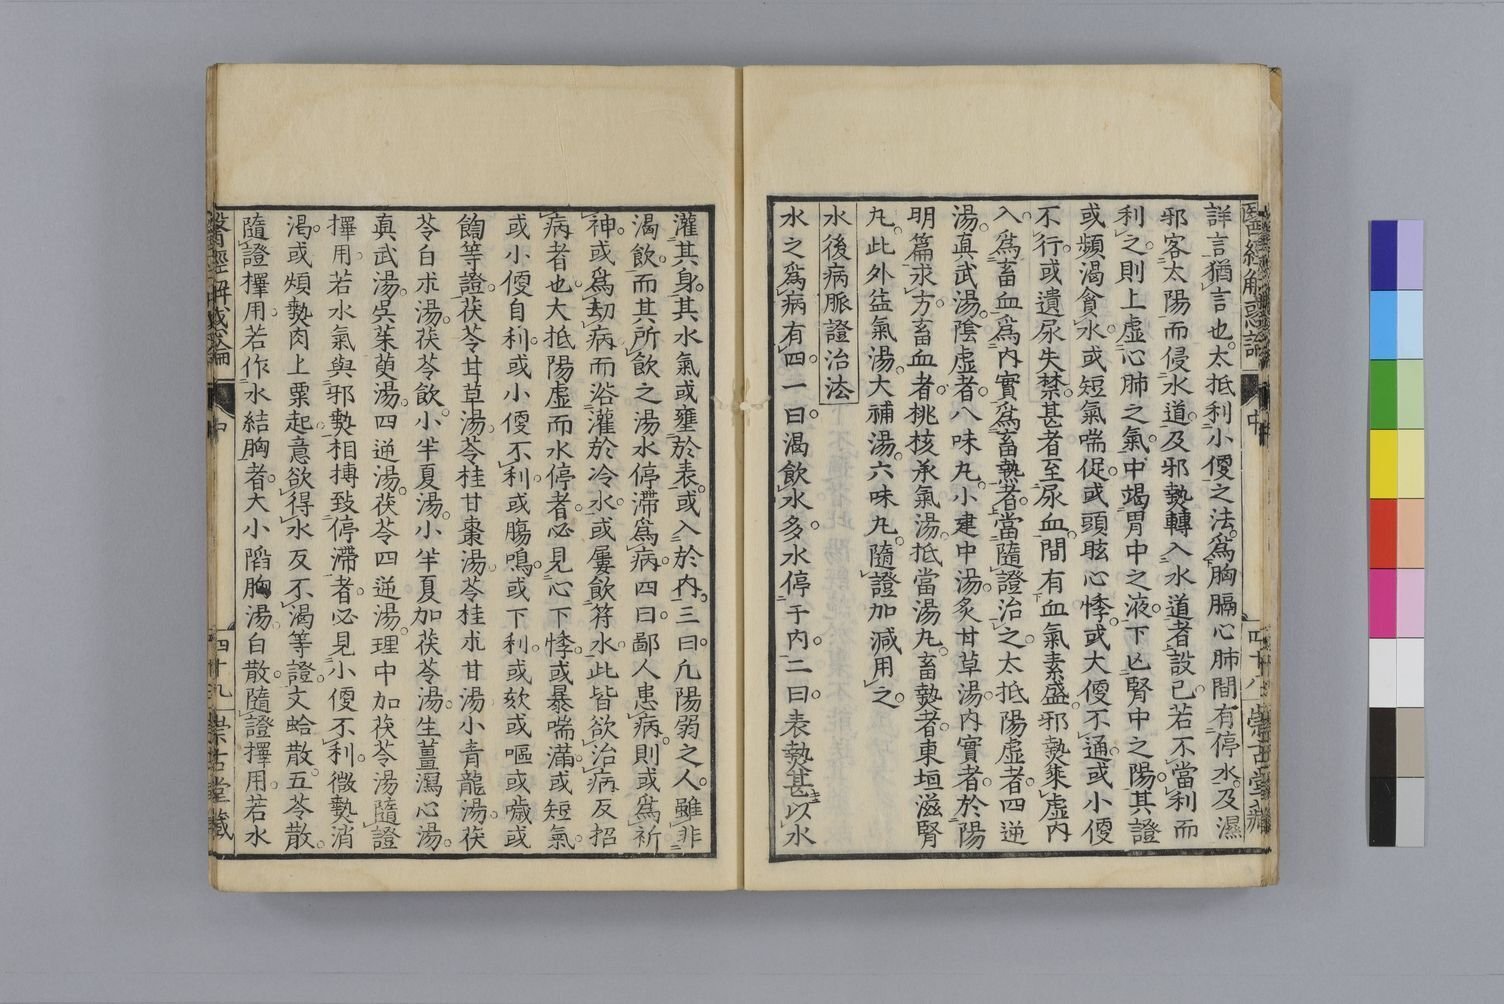 詳言猶言也太抵利小便之法爲胸膈心肺間有停水及濕
邪客太陽而侵水道及邪𤍠轉入水道者設已若不當利而
利之則上虛心肺之氣中竭胃中之液下亡腎中之陽其證
或煩渴貪水或短氣喘促或頭眩心悸或大便不通或小便
不行或遺尿失禁甚者至尿血間有血氣素盛邪𤍠乘虛内
入爲畜血爲内實爲畜熱者當隨證治之太抵陽虛者四逆
湯眞武湯陰虛者八味丸小建中湯炙甘草湯内實者於陽
明篇求方畜血者桃核承氣湯抵當湯丸畜𤍠者東垣滋腎
丸此外益氣湯大補湯六味丸隨證加減用之
水後病脈證治法
水之爲病有四一曰渴飮水多水停于内二曰表𤍠甚以水
灌其身其水氣或壅於表或入於内三曰凡陽弱之人雖非
渴飮而其所飮之湯水停滯爲病四曰鄙人患病則或爲祈
神或爲劫病而浴灌於冷水或屢飮符水此皆欲治病反招
病者也大抵陽虛而水停者必見心下悸或暴喘滿或短氣
或小便自利或小便不利或腸鳴或下利或欬或嘔或噦或
䭇等證茯苓甘草湯苓桂甘棗湯苓桂朮甘湯小青龍湯茯
苓白朮湯茯苓飮小半夏湯小半夏加茯苓湯生薑瀉心湯
眞武湯呉茱萸湯四逆湯茯苓四逆湯理中加茯苓湯隨證
擇用若水氣與邪𤍠相摶致停滯者必見小便不利微𤍠消
渴或煩𤍠肉上粟起意欲得水反不渴等證文蛤散五苓散
隨證擇用若作水結胸者大小陷胸湯白散隨證擇用若水
醫經解惑論 中 四十八 崇古堂藏
醫經解惑論 中 四十九 崇古堂藏